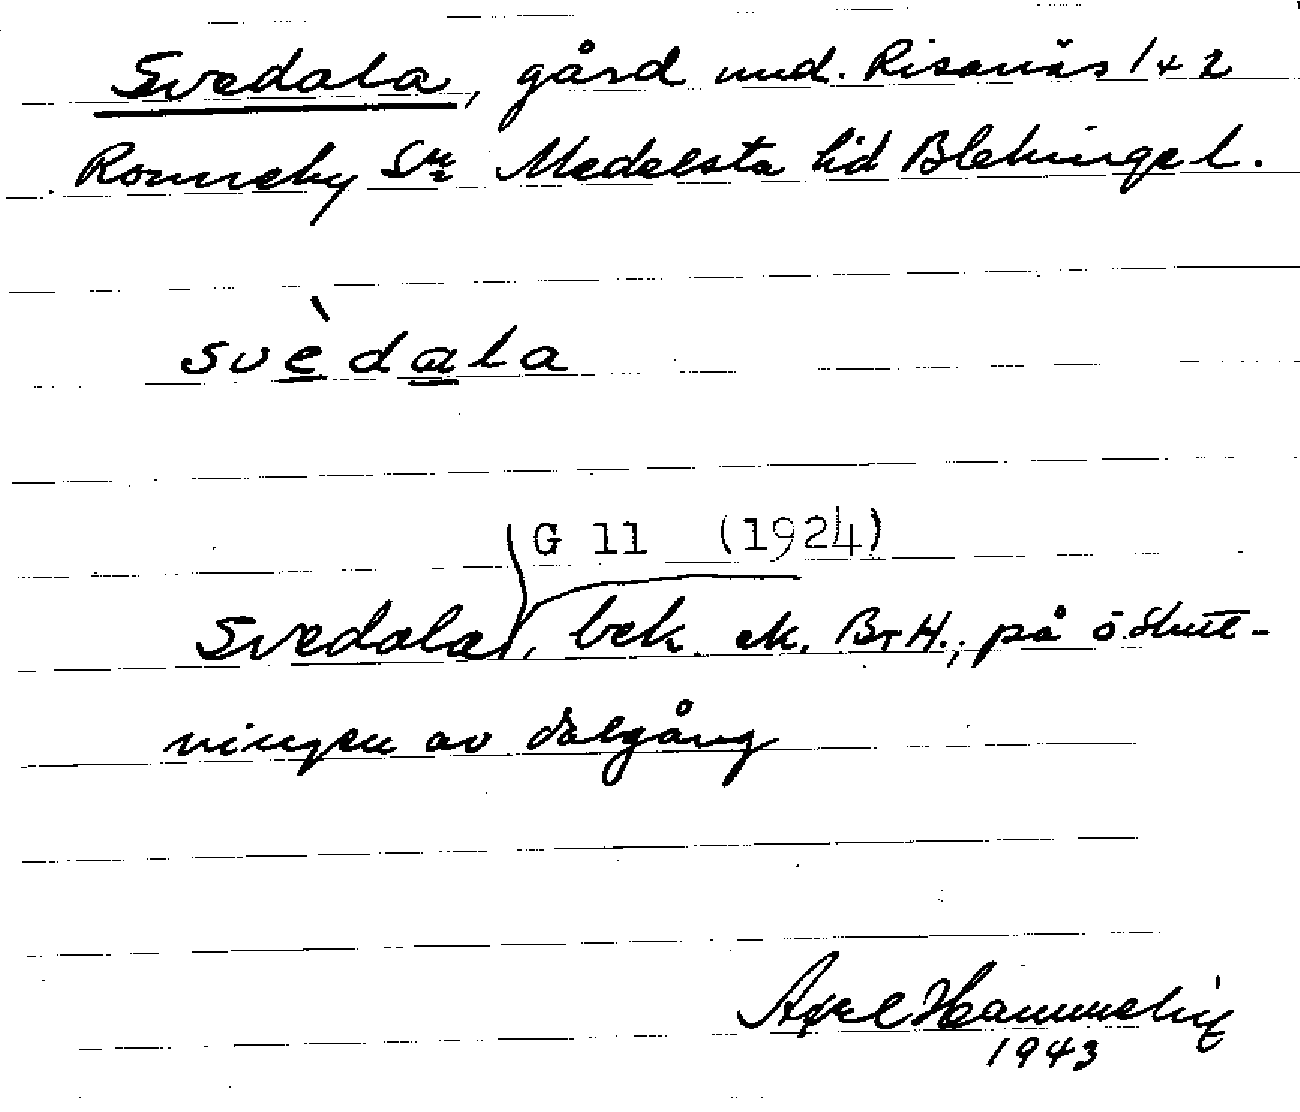 Svedala, gård und. Risanäs 1 + 2
Ronneby Sn Medelsta hd Blekinge l.
svèdala
G 11 (1924)
Svedala, bek. ek. BrH.; på ö slutt-
ningen av dalgång
Axel
1943